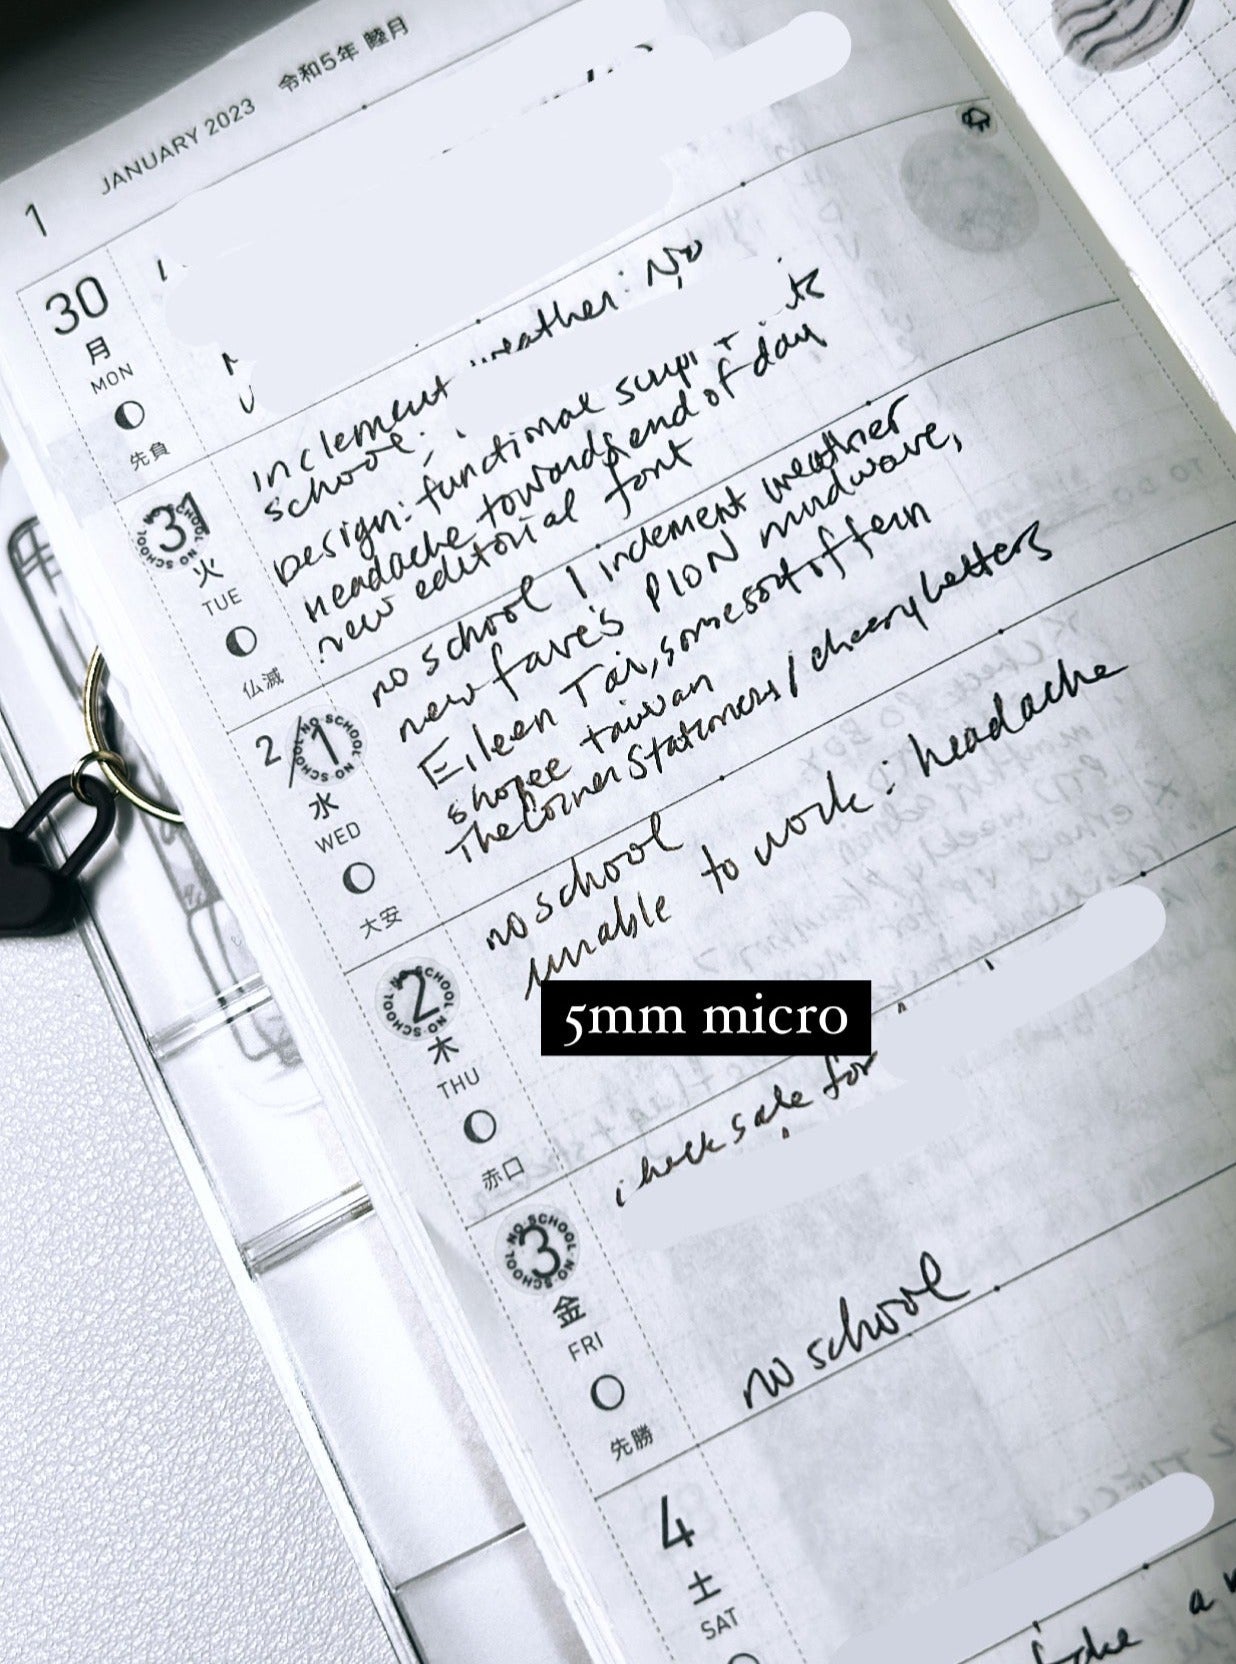 JANUARY 2023 令和5年 睦月
1
30
月
MON
先負
inclement weather: No
school;
Design: functional script
headache towards end of day
new editorial font
31
NO SCHOOL NO SCHOOL
火
TUE
仏滅
no school / inclement weather
new fave's PION mindwave,
Eileen Tai, some sort of fern
shopee taiwan
The Corner Stationers / cheery letters
2/1
NO SCHOOL NO SCHOOL
水
WED
大安
no school
unable to work: headache
2
NO SCHOOL NO SCHOOL
木
THU
赤口
5mm micro
check sale for
3
NO SCHOOL NO SCHOOL
金
FRI
先勝
no school
4
土
SAT